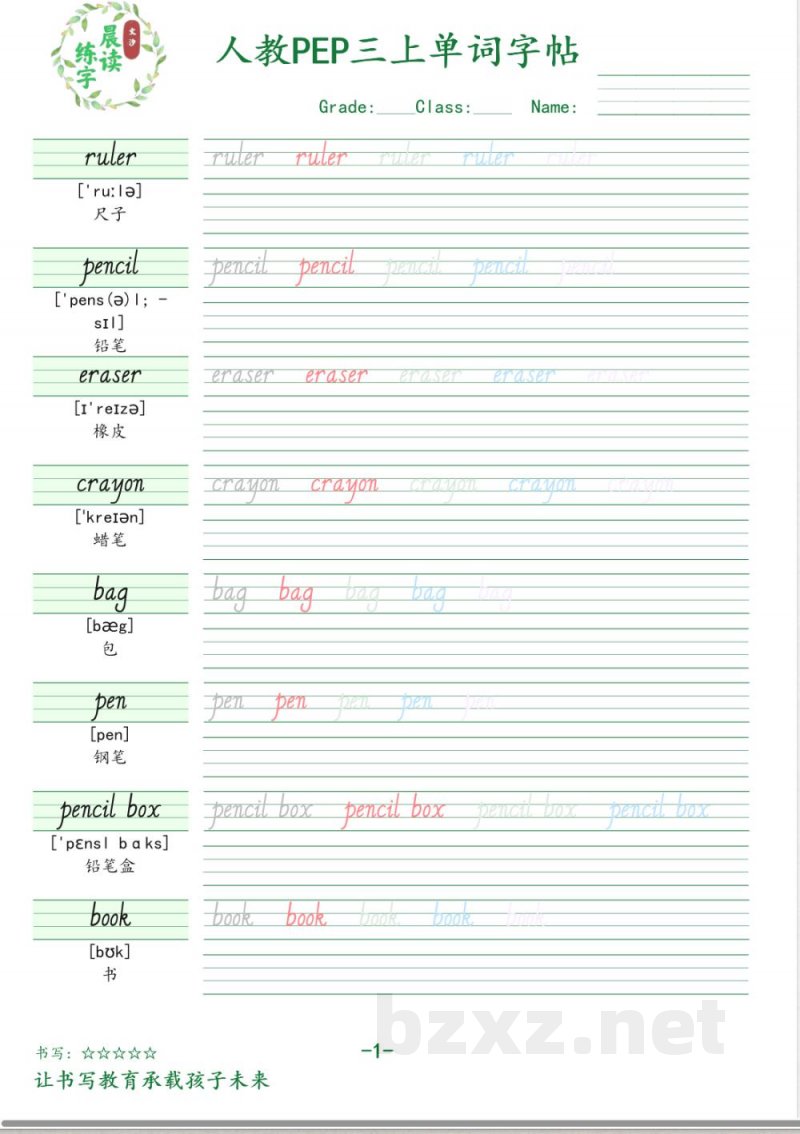 文汐
晨读
练字
人教PEP三上单词字帖
Grade:____Class:____ Name:
ruler ruler ruler ruler ruler ruler
[ˈruːlə]
尺子
pencil pencil pencil pencil pencil pencil
[ˈpens(ə)l; -
sɪl]
铅笔
eraser eraser eraser eraser eraser eraser
[ɪˈreɪzə]
橡皮
crayon crayon crayon crayon crayon crayon
[ˈkreɪən]
蜡笔
bag bag bag bag bag bag
[bæɡ]
包
pen pen pen pen pen pen
[pen]
钢笔
pencil box pencil box pencil box pencil box pencil box
[ˈpɛnsl bɑks]
铅笔盒
book book book book book book
[bʊk]
书
书写：☆☆☆☆☆
-1-
bzxz.net
让书写教育承载孩子未来